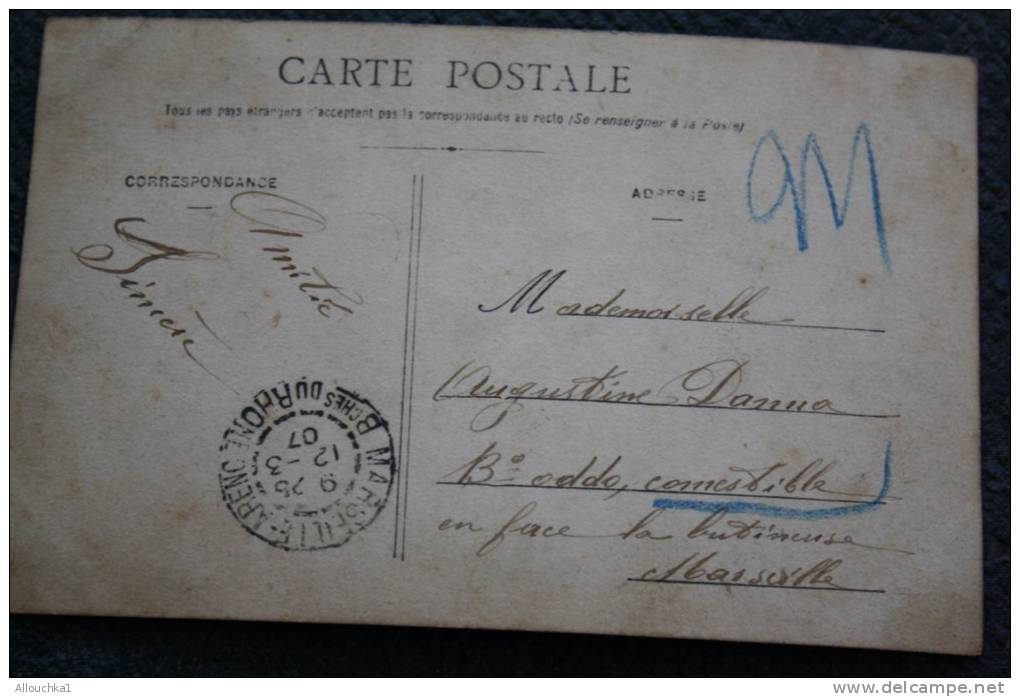 CARTE POSTALE
Tous les pays étrangers n'acceptent pas la correspondance au recto (Se renseigner à la Poste)
CORRESPONDANCE
ADRESSE
Amitié
Sincère
Mademoiselle
Augustine Danna
Bd oddo, comestible
en face la butineuse
Marseille
MARSEILLE-ARENC
BCHES DU RHONE
9 25
12 - 3
07
Allouchka1
www.delcampe.net